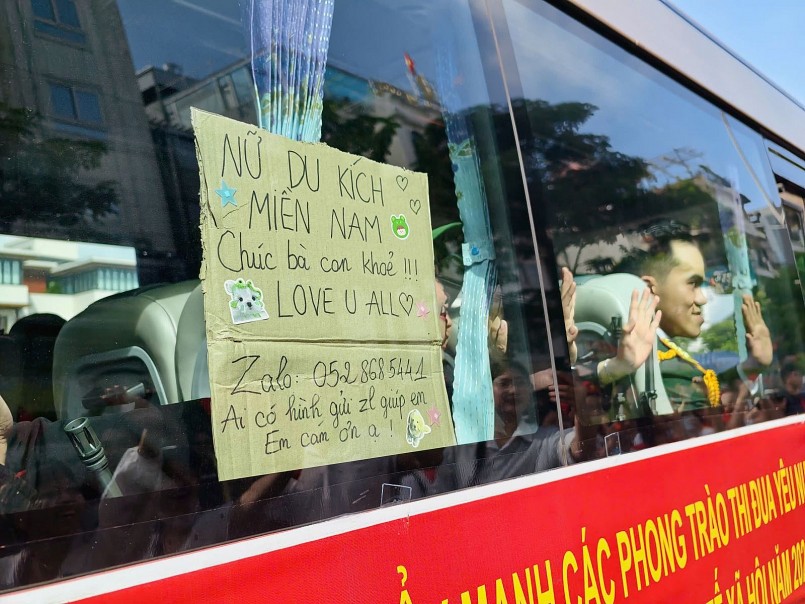 NỮ DU KÍCH
MIỀN NAM
Chúc bà con khoẻ !!!
LOVE U ALL♡
Zalo: 052 868 5441
Ai có hình gửi zl giúp em
Em cám ơn ạ !
MẠNH CÁC PHONG TRÀO THI ĐUA YÊU
XÃ HỘI NĂM